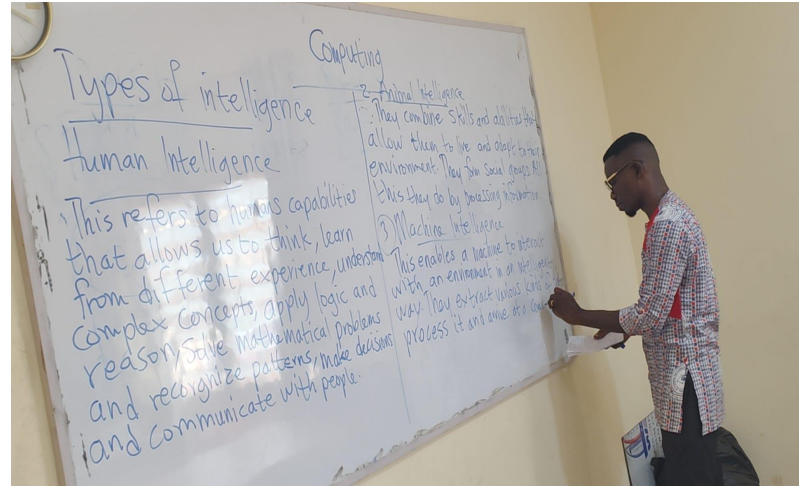 Computing
Types of intelligence
Human Intelligence
This refers to humans capabilities
that allows us to think, learn
from different experience, understand
complex concepts, apply logic and
reason, solve mathematical problems
and recorgnize patterns, make decisions
and communicate with people.
2. Animal Intelligence
They combine skills and abilities that
allow them to live and adapt to their
environment. They form social groups. All
this they do by processing information
3) Machine Intelligence
This enables a machine to interact
with an environment in an intelligent
way. They extract various kinds of
process it and arrive at a